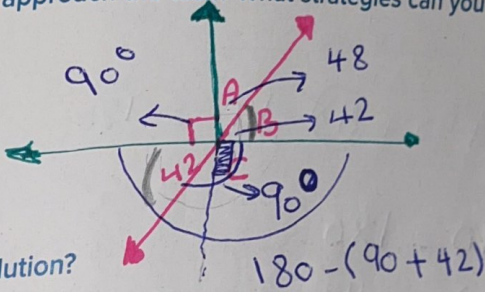 What strategies can you
90°
48
A
B
42
42
C
90°
lution?
180-(90+42)